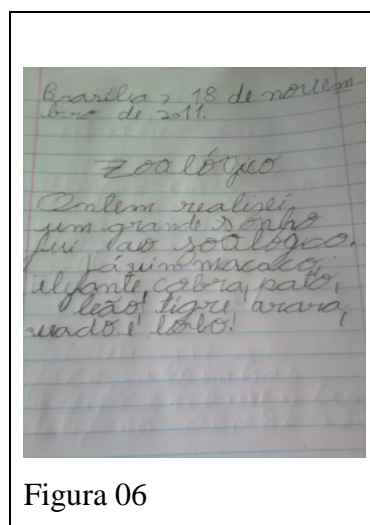 Brasília, 18 de novem
bro de 2011.
zoológico
Ontem realizei
um grande sonho
fui ao soológco.
Lá vi um macaco,
elefante, cobra, pato,
leão, tigre, arara,
veado e lobo!
Figura 06